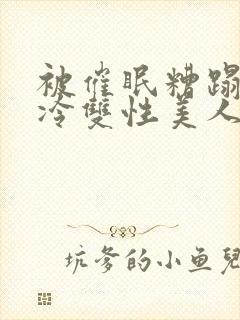 被催眠糟蹋
冷雙性美人
坑爹的小鱼兒